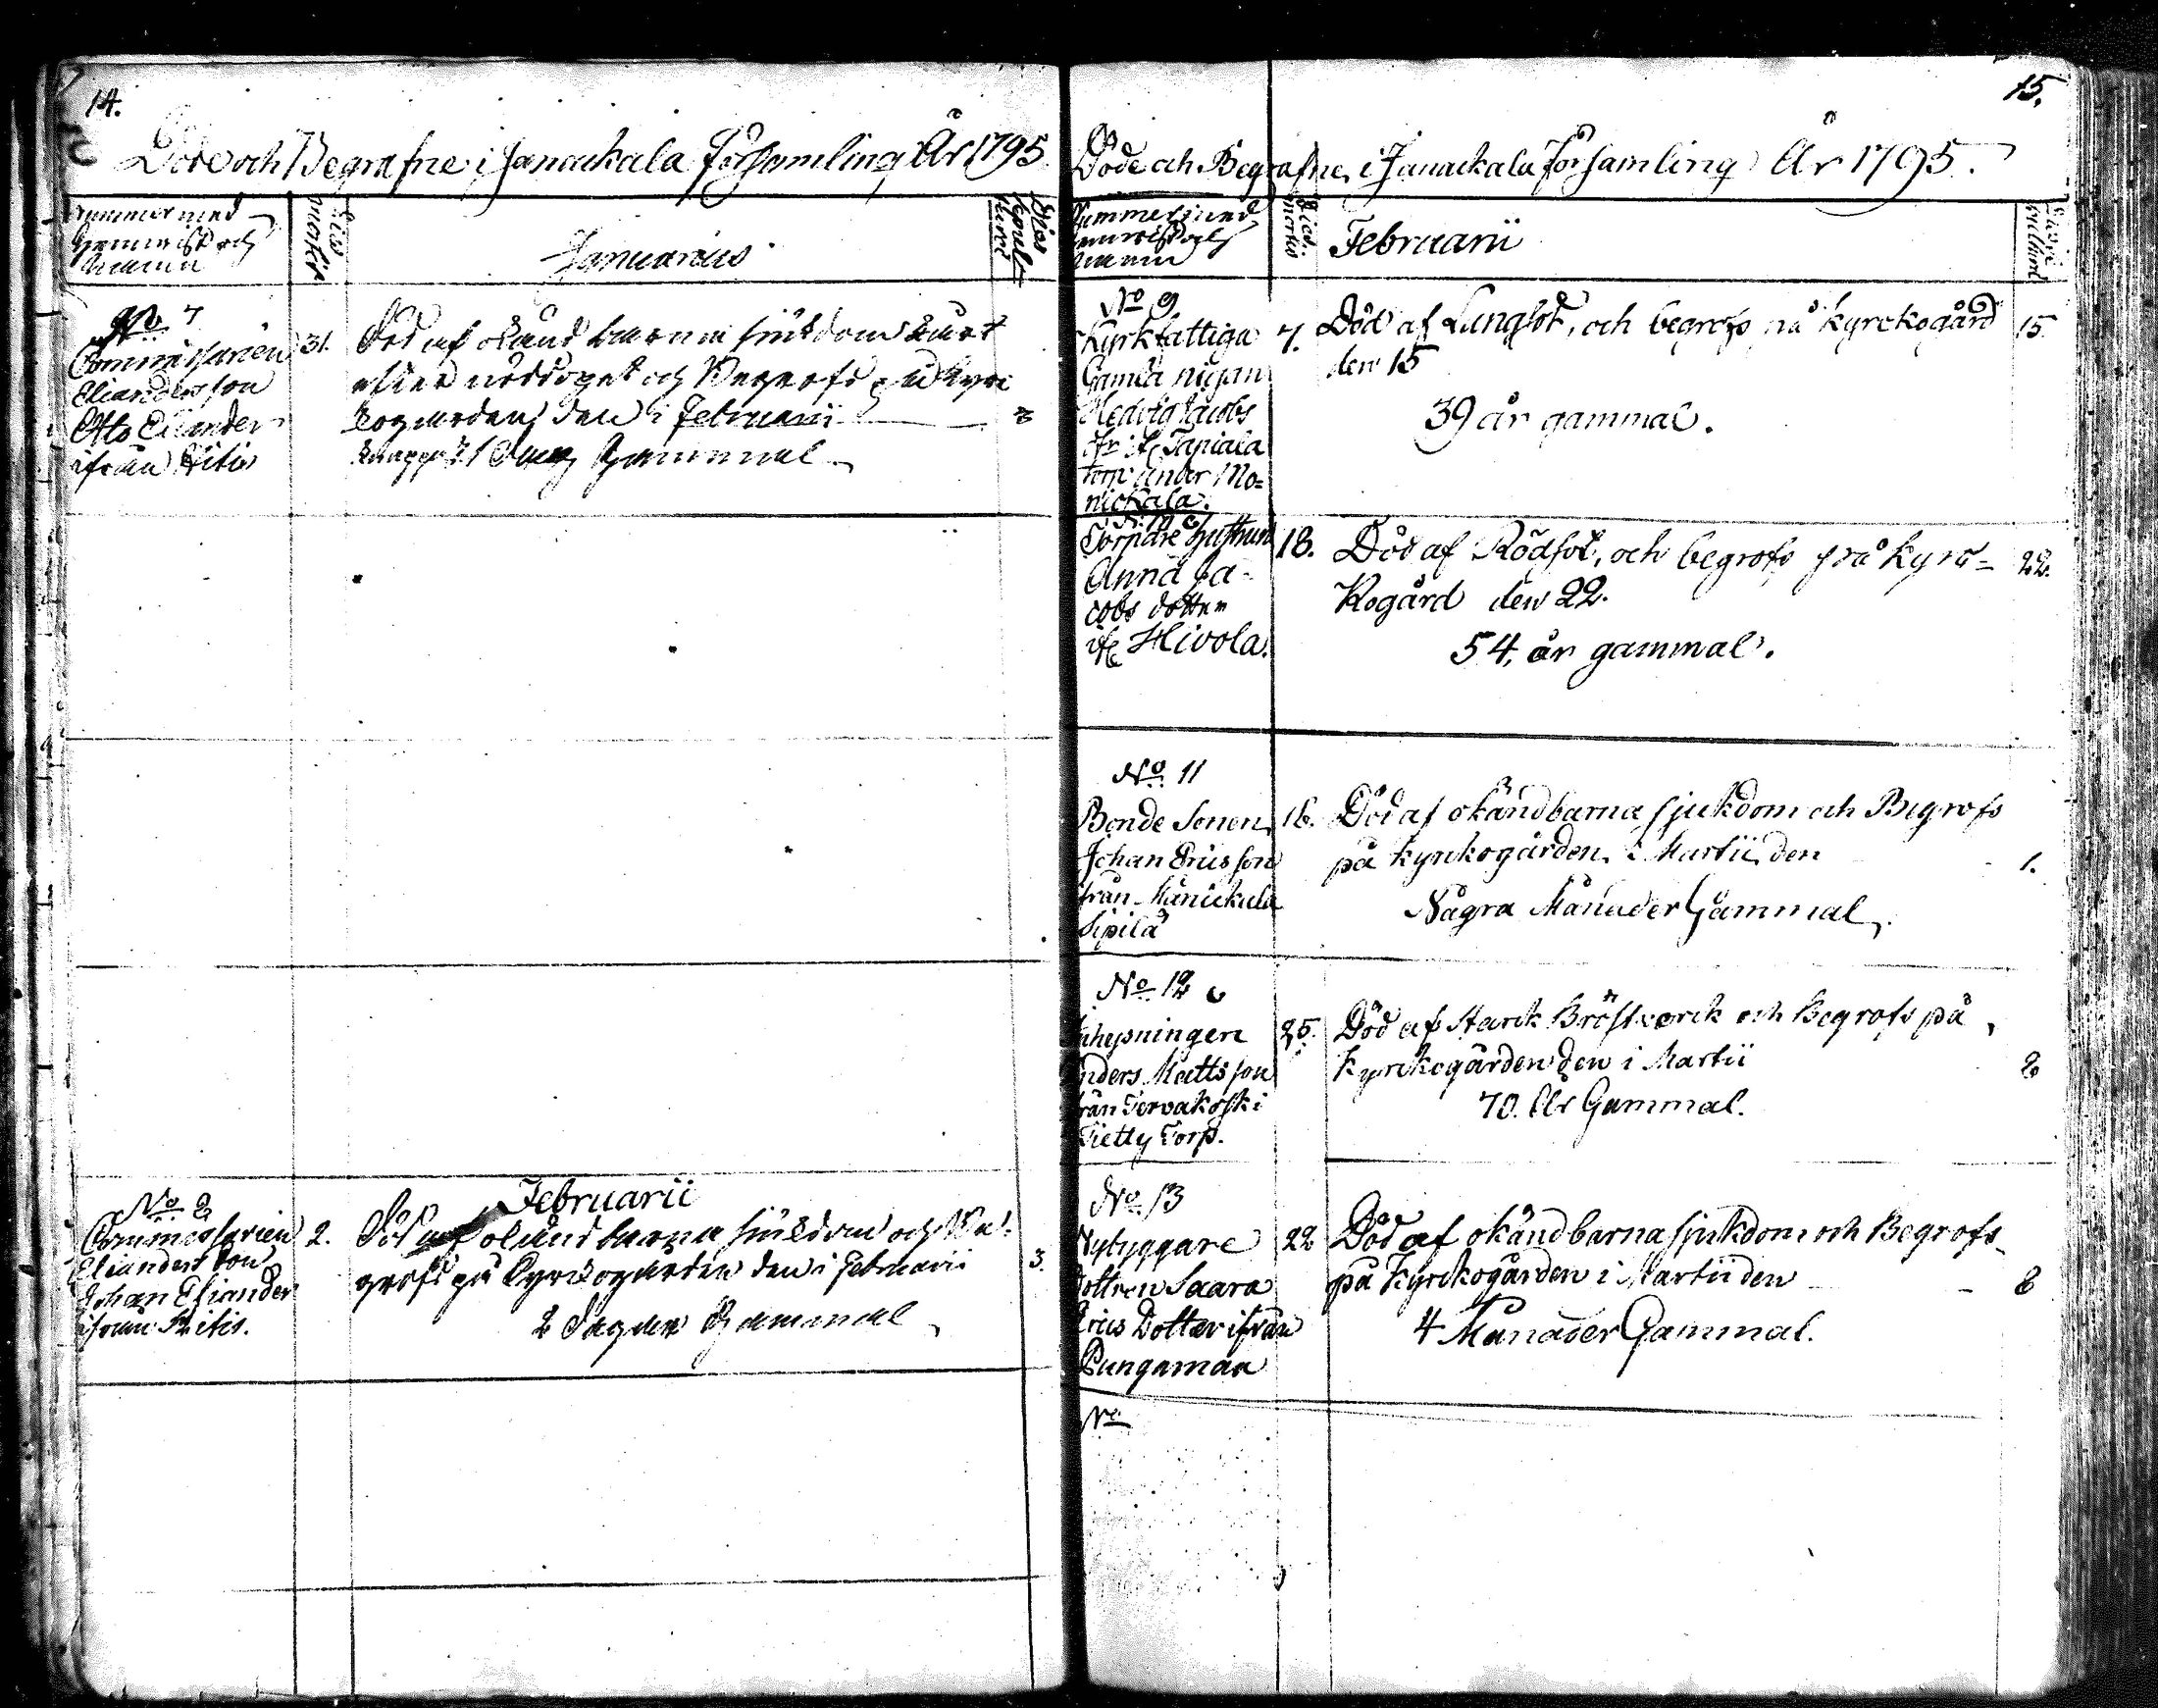 14.
Döde och Begrafne i Janackala Församling År 1795
Nummer med
Hemvist och
Namn
Dies
mortis
Januarius
Dies
sepult
No 7
Commissarien
Elianders son
Otto Eliander
ifrån Hitis
31.
Död af okänd barna siukdom kort
efter nöddopet och Begrofs på kyrc
kogården den i Februarii
2
knappt 1 dag Gammal
Februarii
No 8
Commissarien
Elianders son
Johan Eliander
ifrån Hitis.
2.
Död af okänd barna siukdom och Be-
grofs på Kyrckogården den i Februarii
3.
2 Dagar Gammal
15.
Döde och Begrafne i Janackala Församling År 1795.
Nummer med
hemvist och
namn
Dies
mortis
Februarii
No 9
Kyrkfattiga
Gamla pigan
Hedvig Jacobs
dr: if: Tapiala
torp under Mo-
nickala.
7.
Död af Lungsot, och begrofs på kyrckogård
15.
den 15
39 år gammal.
Torpare hustrun
Anna Ja-
cobs dotter
if: Hivola.
18.
Död af Rödsot, och begrofs på kyrc-
22.
kogård den 22.
54, år gammal.
No 11
Bonde Sonen
Johan Ericsson
från Monickala
Sipilä
16.
Död af okänd barna sjukdom och Begrofs
på kyrckogården i Martii den
1.
Några Månader Gammal
No 12
Inhysningen
Anders Matts son
från Tervakoski
Tietty Torp.
25.
Död af Starck Bröstvärck och Begrofs på
Kyrckogården den i Martii
8
70. År Gammal.
No 13
Nybyggare
Dottren Saara
Erics Dotter ifrån
Pungamaa
22
Död af okänd barna sjukdom och Begrofs
på Kyrckogården i Martii den
8
4 Månader Gammal.
No